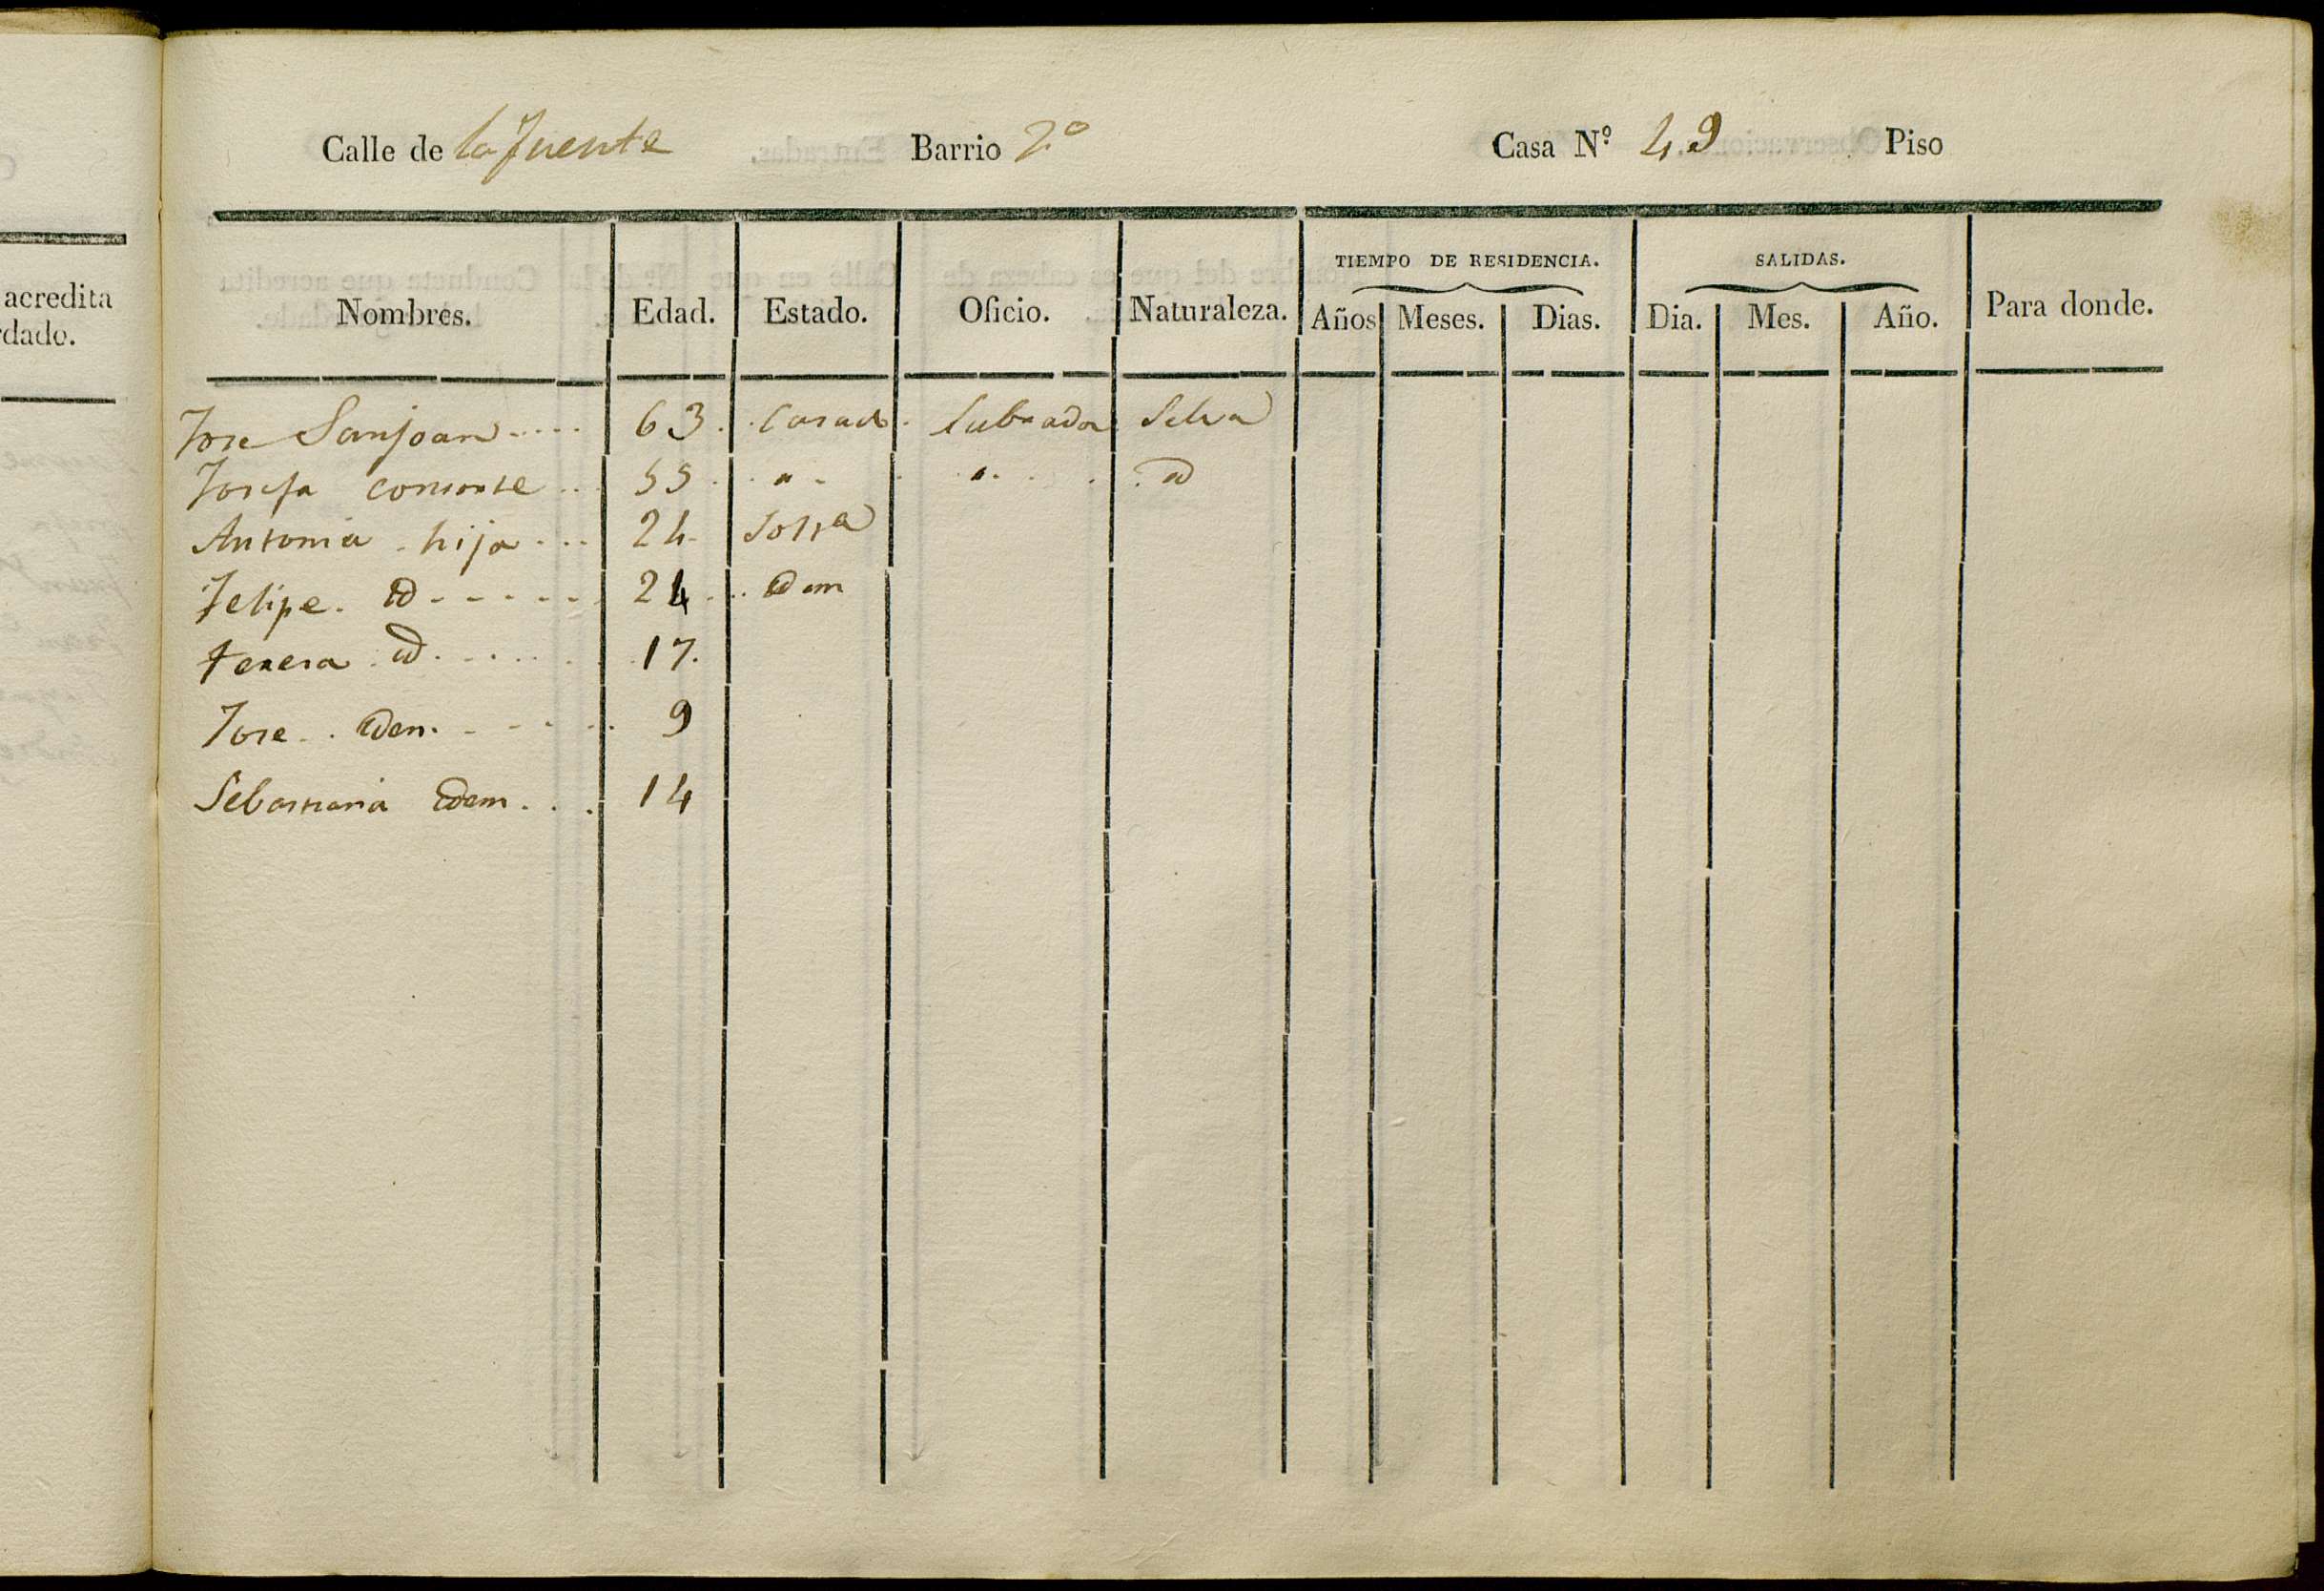 Calle de la fuente Barrio 2.º Casa N.º 49 Piso
TIEMPO DE RESIDENCIA. SALIDAS.
Nombres. Edad. Estado. Oficio. Naturaleza. Años Meses. Dias. Dia. Mes. Año. Para donde.
acredita
dado.
Jose Sanjoan 63 Casado Labrador Selva
Josefa consorte 55 " " id
Antonia hija 24 Soltra
Felipe id 24 idem
teresa id 17
Jose idem 9
Sebastiana idem 14